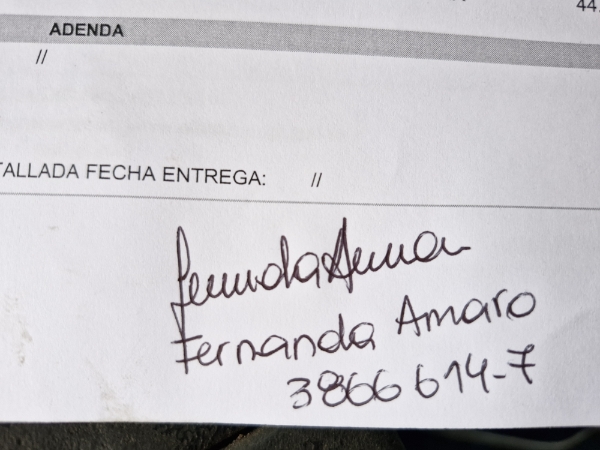 44.
ADENDA
//
TALLADA FECHA ENTREGA: //
Fernanda Amaro
3866614-7